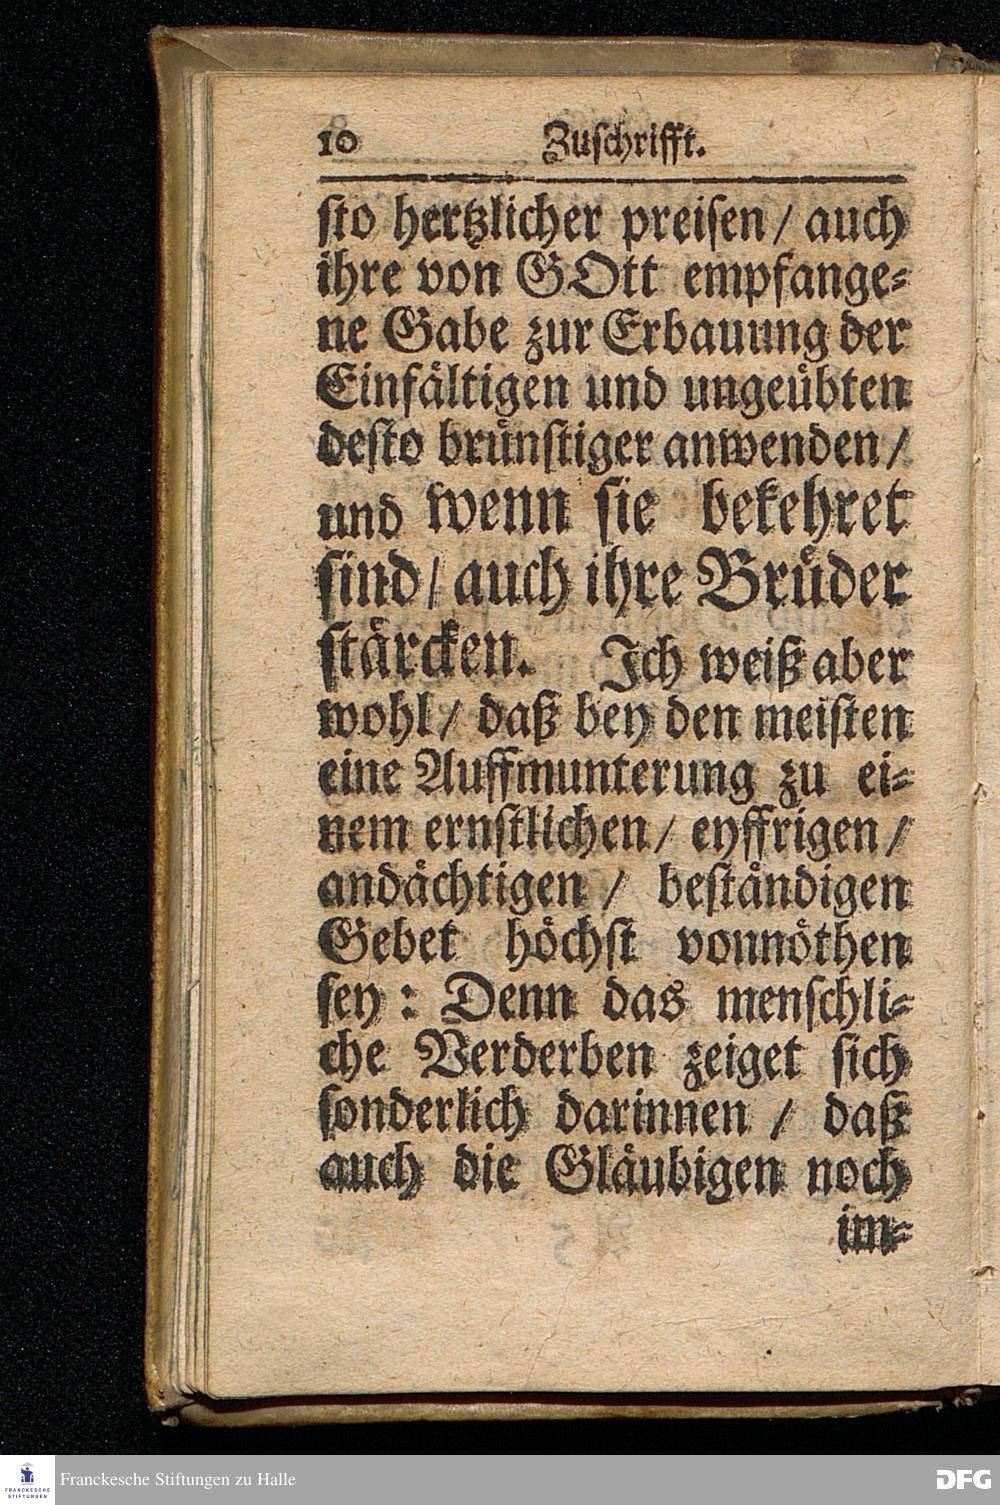 10 Zuſchrifft.
ſto hertzlicher preiſen / auch
ihre von GOtt empfange⸗
ne Gabe zur Erbauung der
Einfaͤltigen und ungeuͤbten
deſto bruͤnſtiger anwenden /
und wenn ſie bekehret
ſind / auch ihre Bruͤder
ſtaͤrcken. Ich weiß aber
wohl / daß bey den meiſten
eine Auffmunterung zu ei⸗
nem ernſtlichen / eyffrigen /
andaͤchtigen / beſtaͤndigen
Gebet hoͤchſt vonnoͤthen
ſey : Denn das menſchli⸗
che Verderben zeiget ſich
ſonderlich darinnen / daß
auch die Glaͤubigen noch
im⸗
FRANCKESCHE
STIFTUNGEN
Franckesche Stiftungen zu Halle
DFG